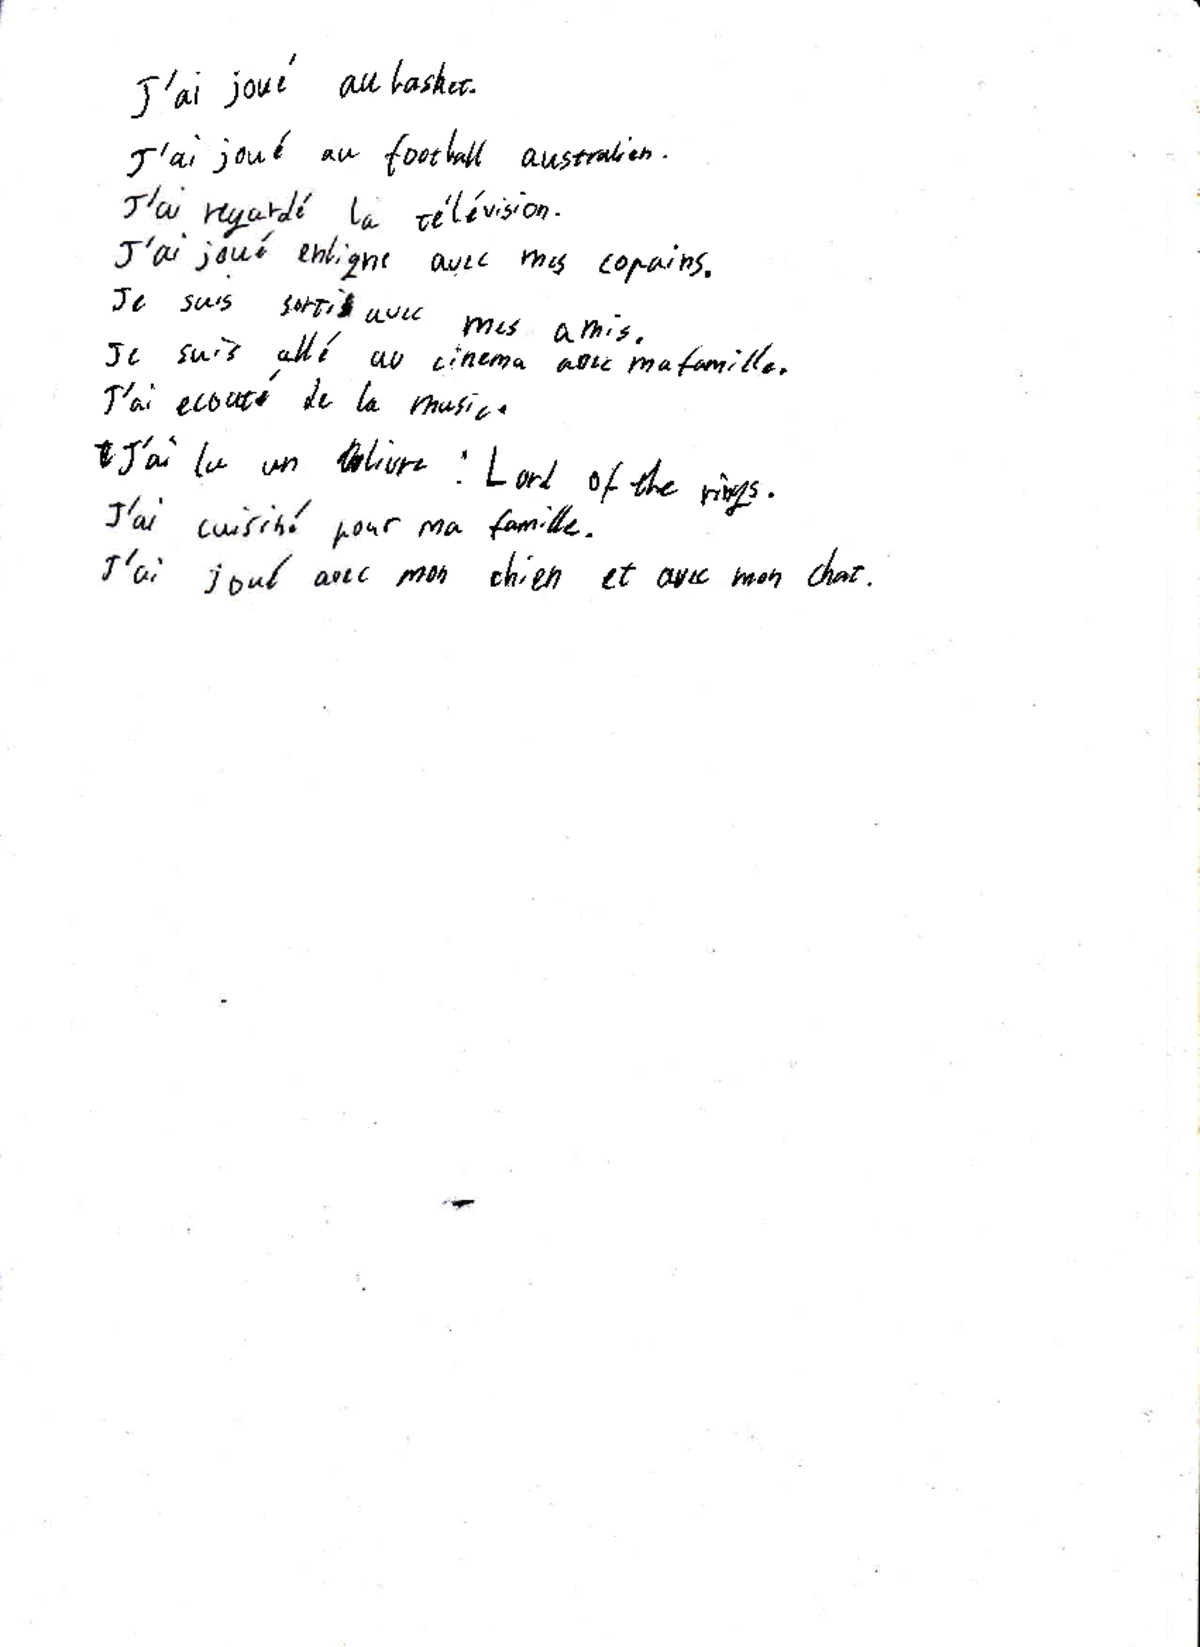 J'ai joué au basket.
J'ai joué au football australien.
J'ai regardé la télévision.
J'ai joué enligne avec mes copains.
Je suis sorti avec mes amis.
Je suis allé au cinema avec ma famille.
J'ai ecouté de la music.
J'ai lu un livre : Lord of the rings.
J'ai cuisiné pour ma famille.
J'ai joué avec mon chien et avec mon chat.